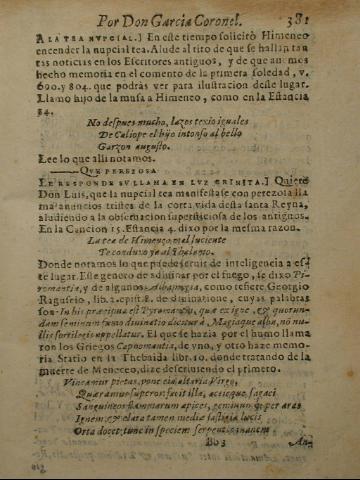 Por Don Garcia Coronel. 381
A LA TEA NVPCIAL.] En este tiempo solicitò Himeneo
encender la nupcial tea. Alude al rito de que se hallan tan
tas noticias en los Escritores antiguos, y de que auemos
hecho memoria en el comento de la primera soledad, v.
690. y 804. que podràs ver para ilustracion deste lugar.
Llamo hijo de la musa a Himeneo, como en la Estancia
34.
No despues mucho, lazos texio iguales
De Caliope el hijo intonso al bello
Garzon augusto.
Lee lo que alli notamos.
QVE PEREZOSA
LE RESPONDE SV LLAMA EN LVZ CRINITA.] Quiere
Don Luis, que la nupcial tea manifestasse con perezosa lla
ma anuncios tristes de la corta vida desta santa Reyna,
aludiendo a la obseruacion supersticiosa de los antiguos.
En la Cancion 15. Estancia 4. dixo por la mesma razon.
La tea de Himeneo mal luciente
Te conduxo ya al Thalamo.
Donde notamos lo que puede seruir de inteligencia a es-
te lugar. Este genero de adiuinar por el fuego, se dixo Pi-
romantia, y de algunos como refiere Georgio
Raguseio, lib. 2. epist. 8. de diuinatione, cuyas palabras
son. In his præcipua est Pyromantia, quæ ex igne, &
seminum diuinatio dicitur, Magiaque alba, nõ nu-
llis appellatur. El que se hazia por el humo llama
ron los Griegos Capnomantia, de vno, y otro haze memo-
ria Statio en la Thebaida lib. 10. donde tratando de la
muerte de Meneceo, dize descriuiendo el primero.
pietas, ait Virgo,
Quæramus superos: facit illa, acieque sagaci
Sanguineos flammarum apices, geminumque per aras
Ignem, & clara tamen mediæ fastigia lucis
Orta docet: tunc in speciem serpentis inanem
Bb3 An-